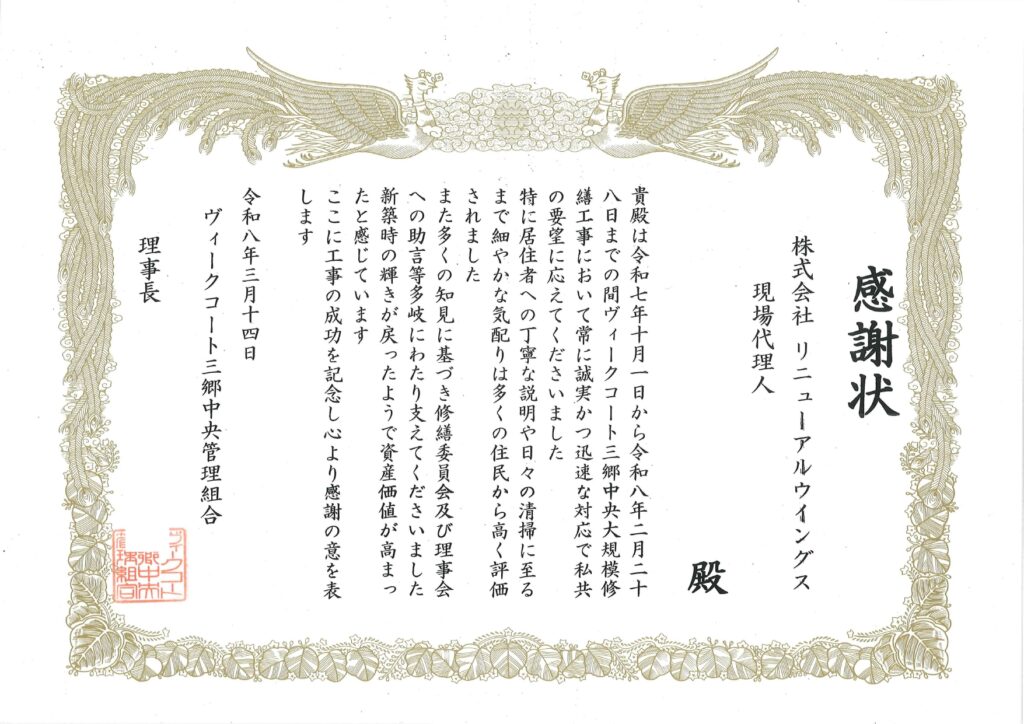 感謝状
株式会社 リニューアルウイングス
現場代理人
殿
貴殿は令和七年十月一日から令和八年二月二十
八日までの間ヴィークコート三郷中央大規模修
繕工事において常に誠実かつ迅速な対応で私共
の要望に応えてくださいました
特に居住者への丁寧な説明や日々の清掃に至る
まで細やかな気配りは多くの住民から高く評価
されました
また多くの知見に基づき修繕委員会及び理事会
への助言等多岐にわたり支えてくださいました
新築時の輝きが戻ったようで資産価値が高まっ
たと感じています
ここに工事の成功を記念し心より感謝の意を表
します
令和八年三月十四日
ヴィークコート三郷中央管理組合
理事長